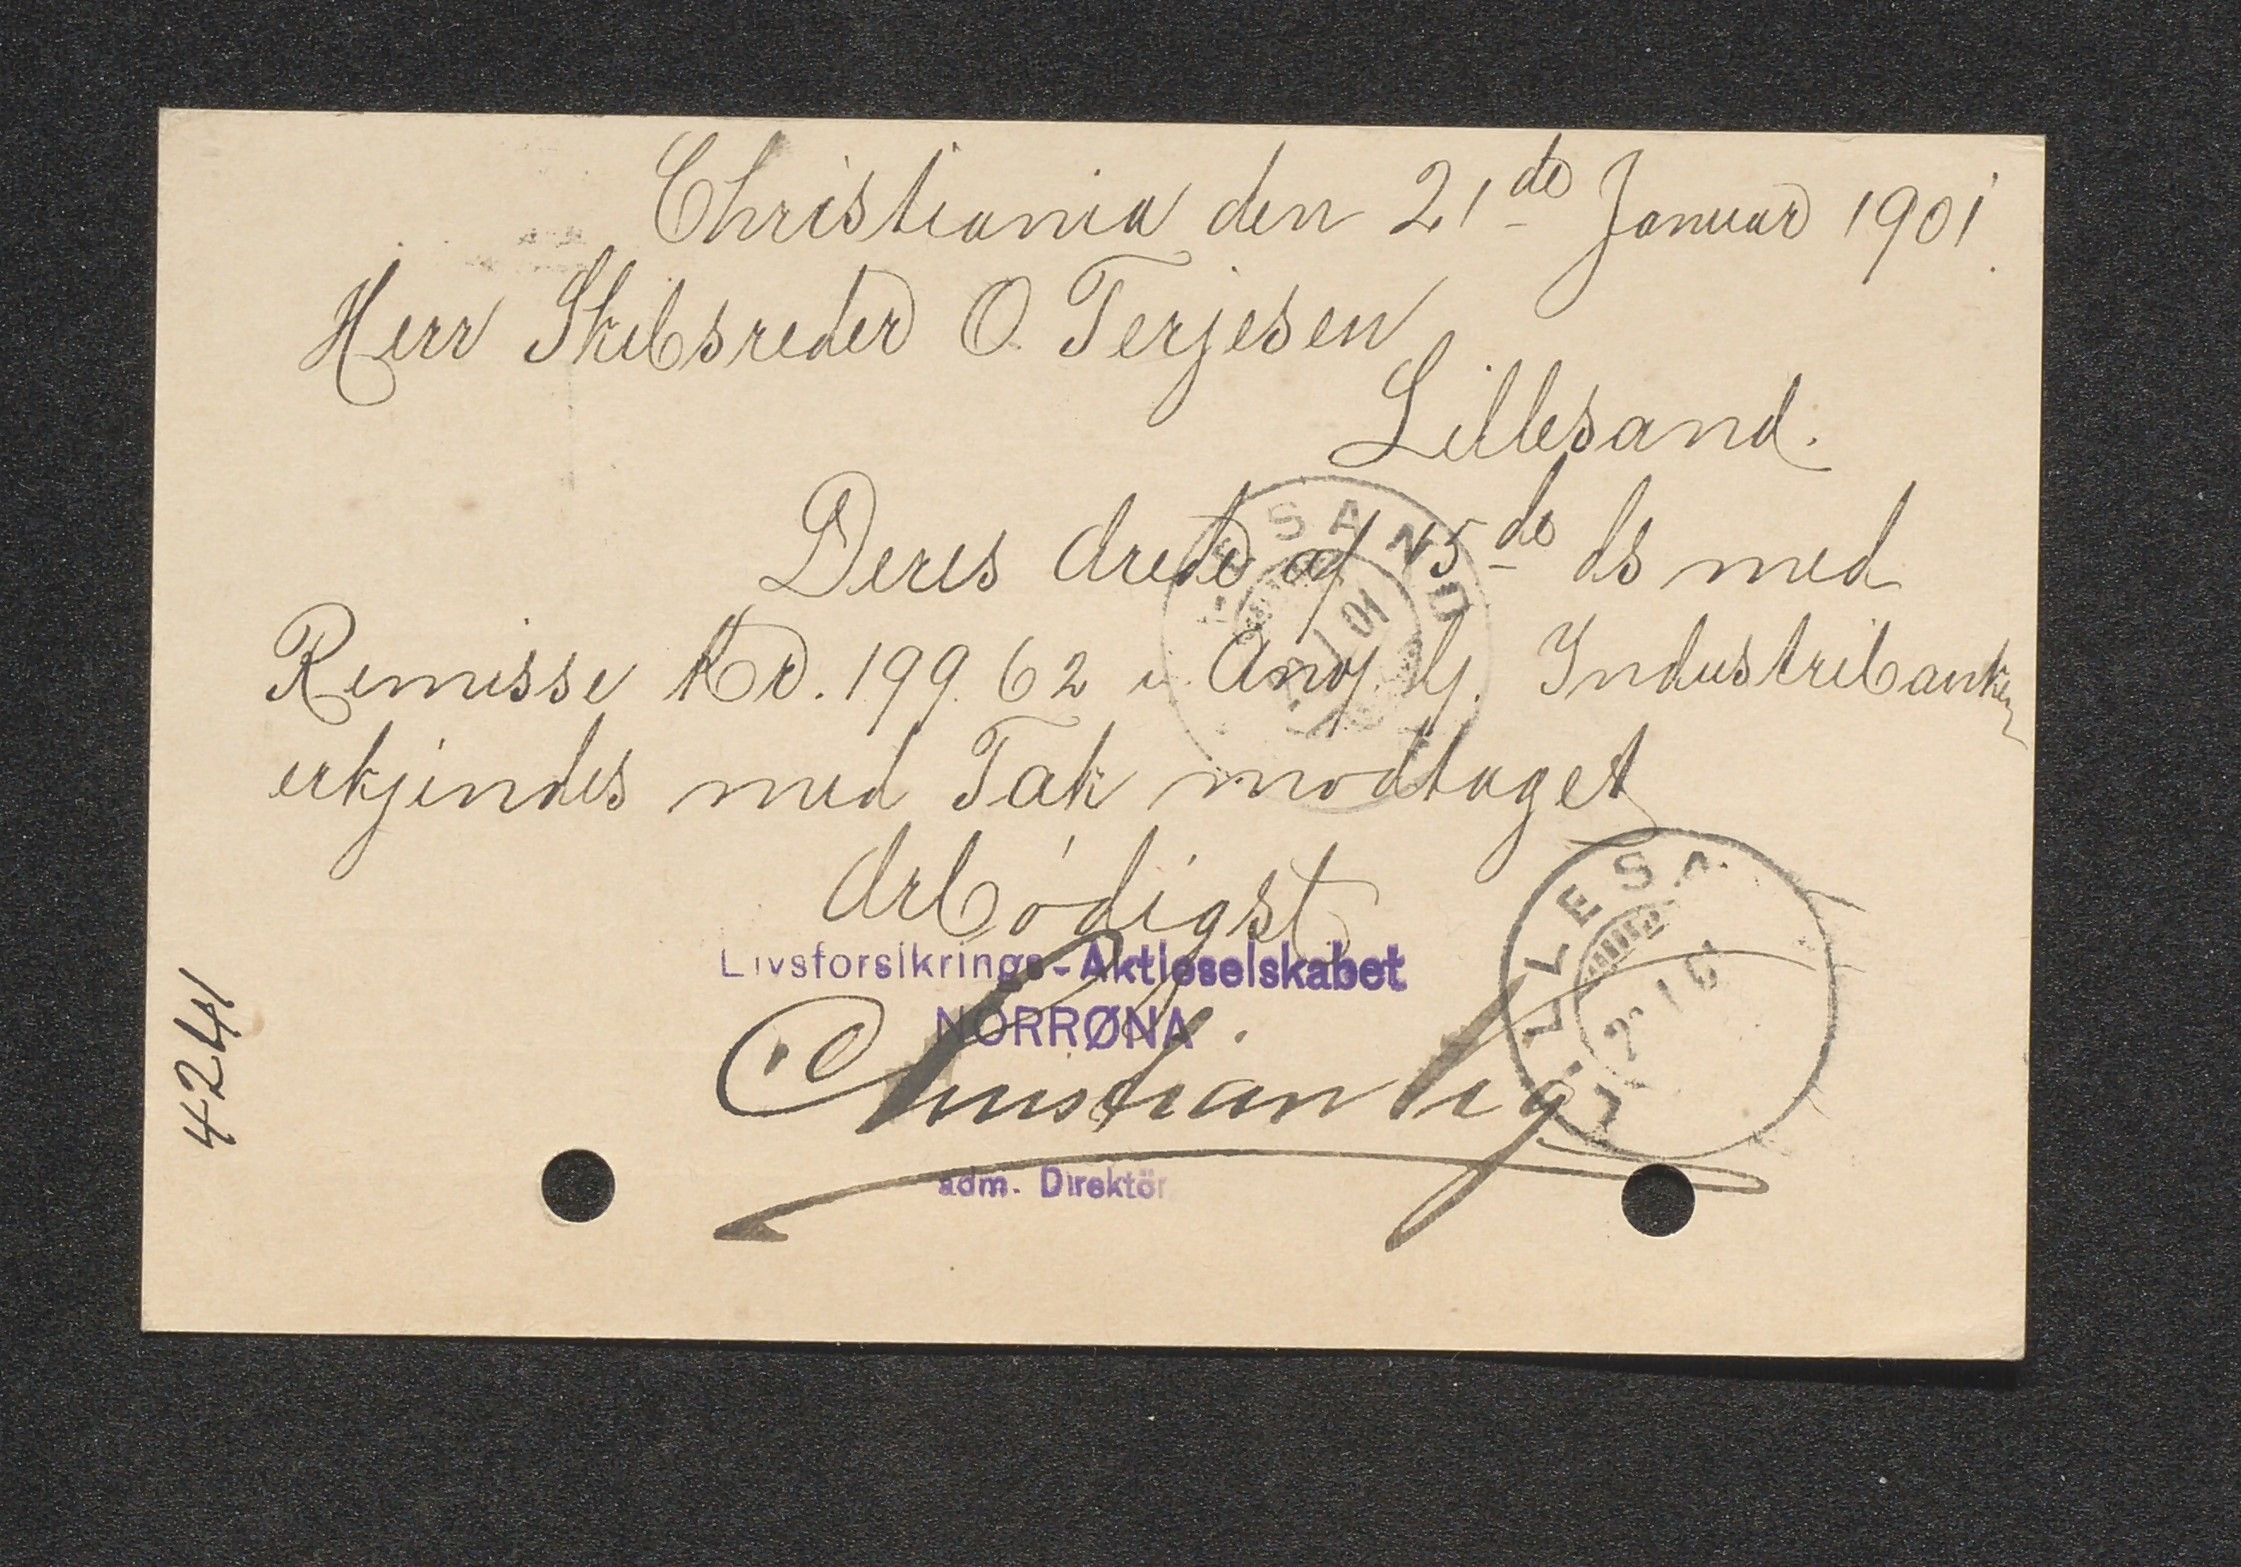 Christiania den 21de Januar 1901.
Herr Skibsreder O. Terjesen
Lillesand.
Deres Ærede af 15de ds med
Remisse Kr. 199.62 i Anv. Industribanken
erkjendes med Tak modtaget
Ærbødigst
Livsforsikrings-Aktieselskabet
NORRØNA
Christian
adm. Direktör
4241
LESAND
1 01
LILLESA